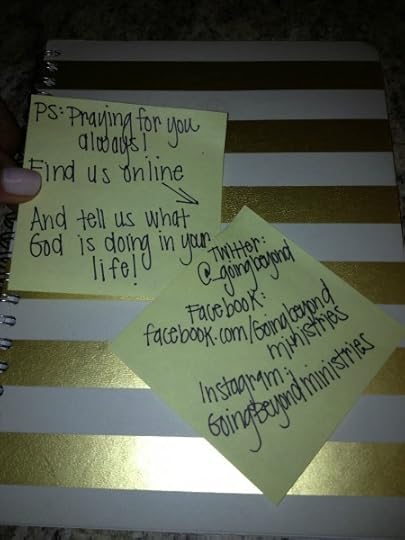 PS: Praying for you
always!
Find us online
And tell us what
God is doing in your
life!
Twitter:
@_goingbeyond
Facebook:
facebook.com/Goingbeyond
ministries
Instagram:
GoingBeyondministries